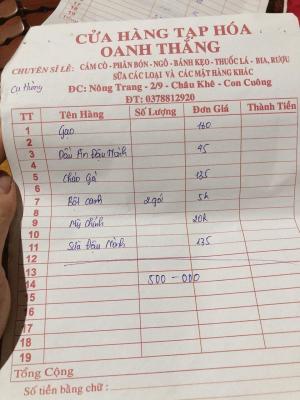 CỬA HÀNG TẠP HÓA
OANH THẮNG
CHUYÊN SỈ LẺ: CÁM CÒ - PHÂN BÓN - NGÔ - BÁNH KẸO - THUỐC LÁ - BIA, RƯỢU
SỮA CÁC LOẠI VÀ CÁC MẶT HÀNG KHÁC
ĐC: Nông Trang - 2/9 - Châu Khê - Con Cuông
ĐT: 0378812920
TT Tên Hàng Số Lượng Đơn Giá Thành Tiền
1 Gạo 160
2
3 Dầu Ăn 45
4
5 Cháo Gà 135
6
7 Bột canh 2 gói 5k
8
9 Mỳ chính 20k
10
11 Sữa 135
12
13
14 500 - 000
15
16
17
18
19
Tổng Cộng
Số tiền bằng chữ :